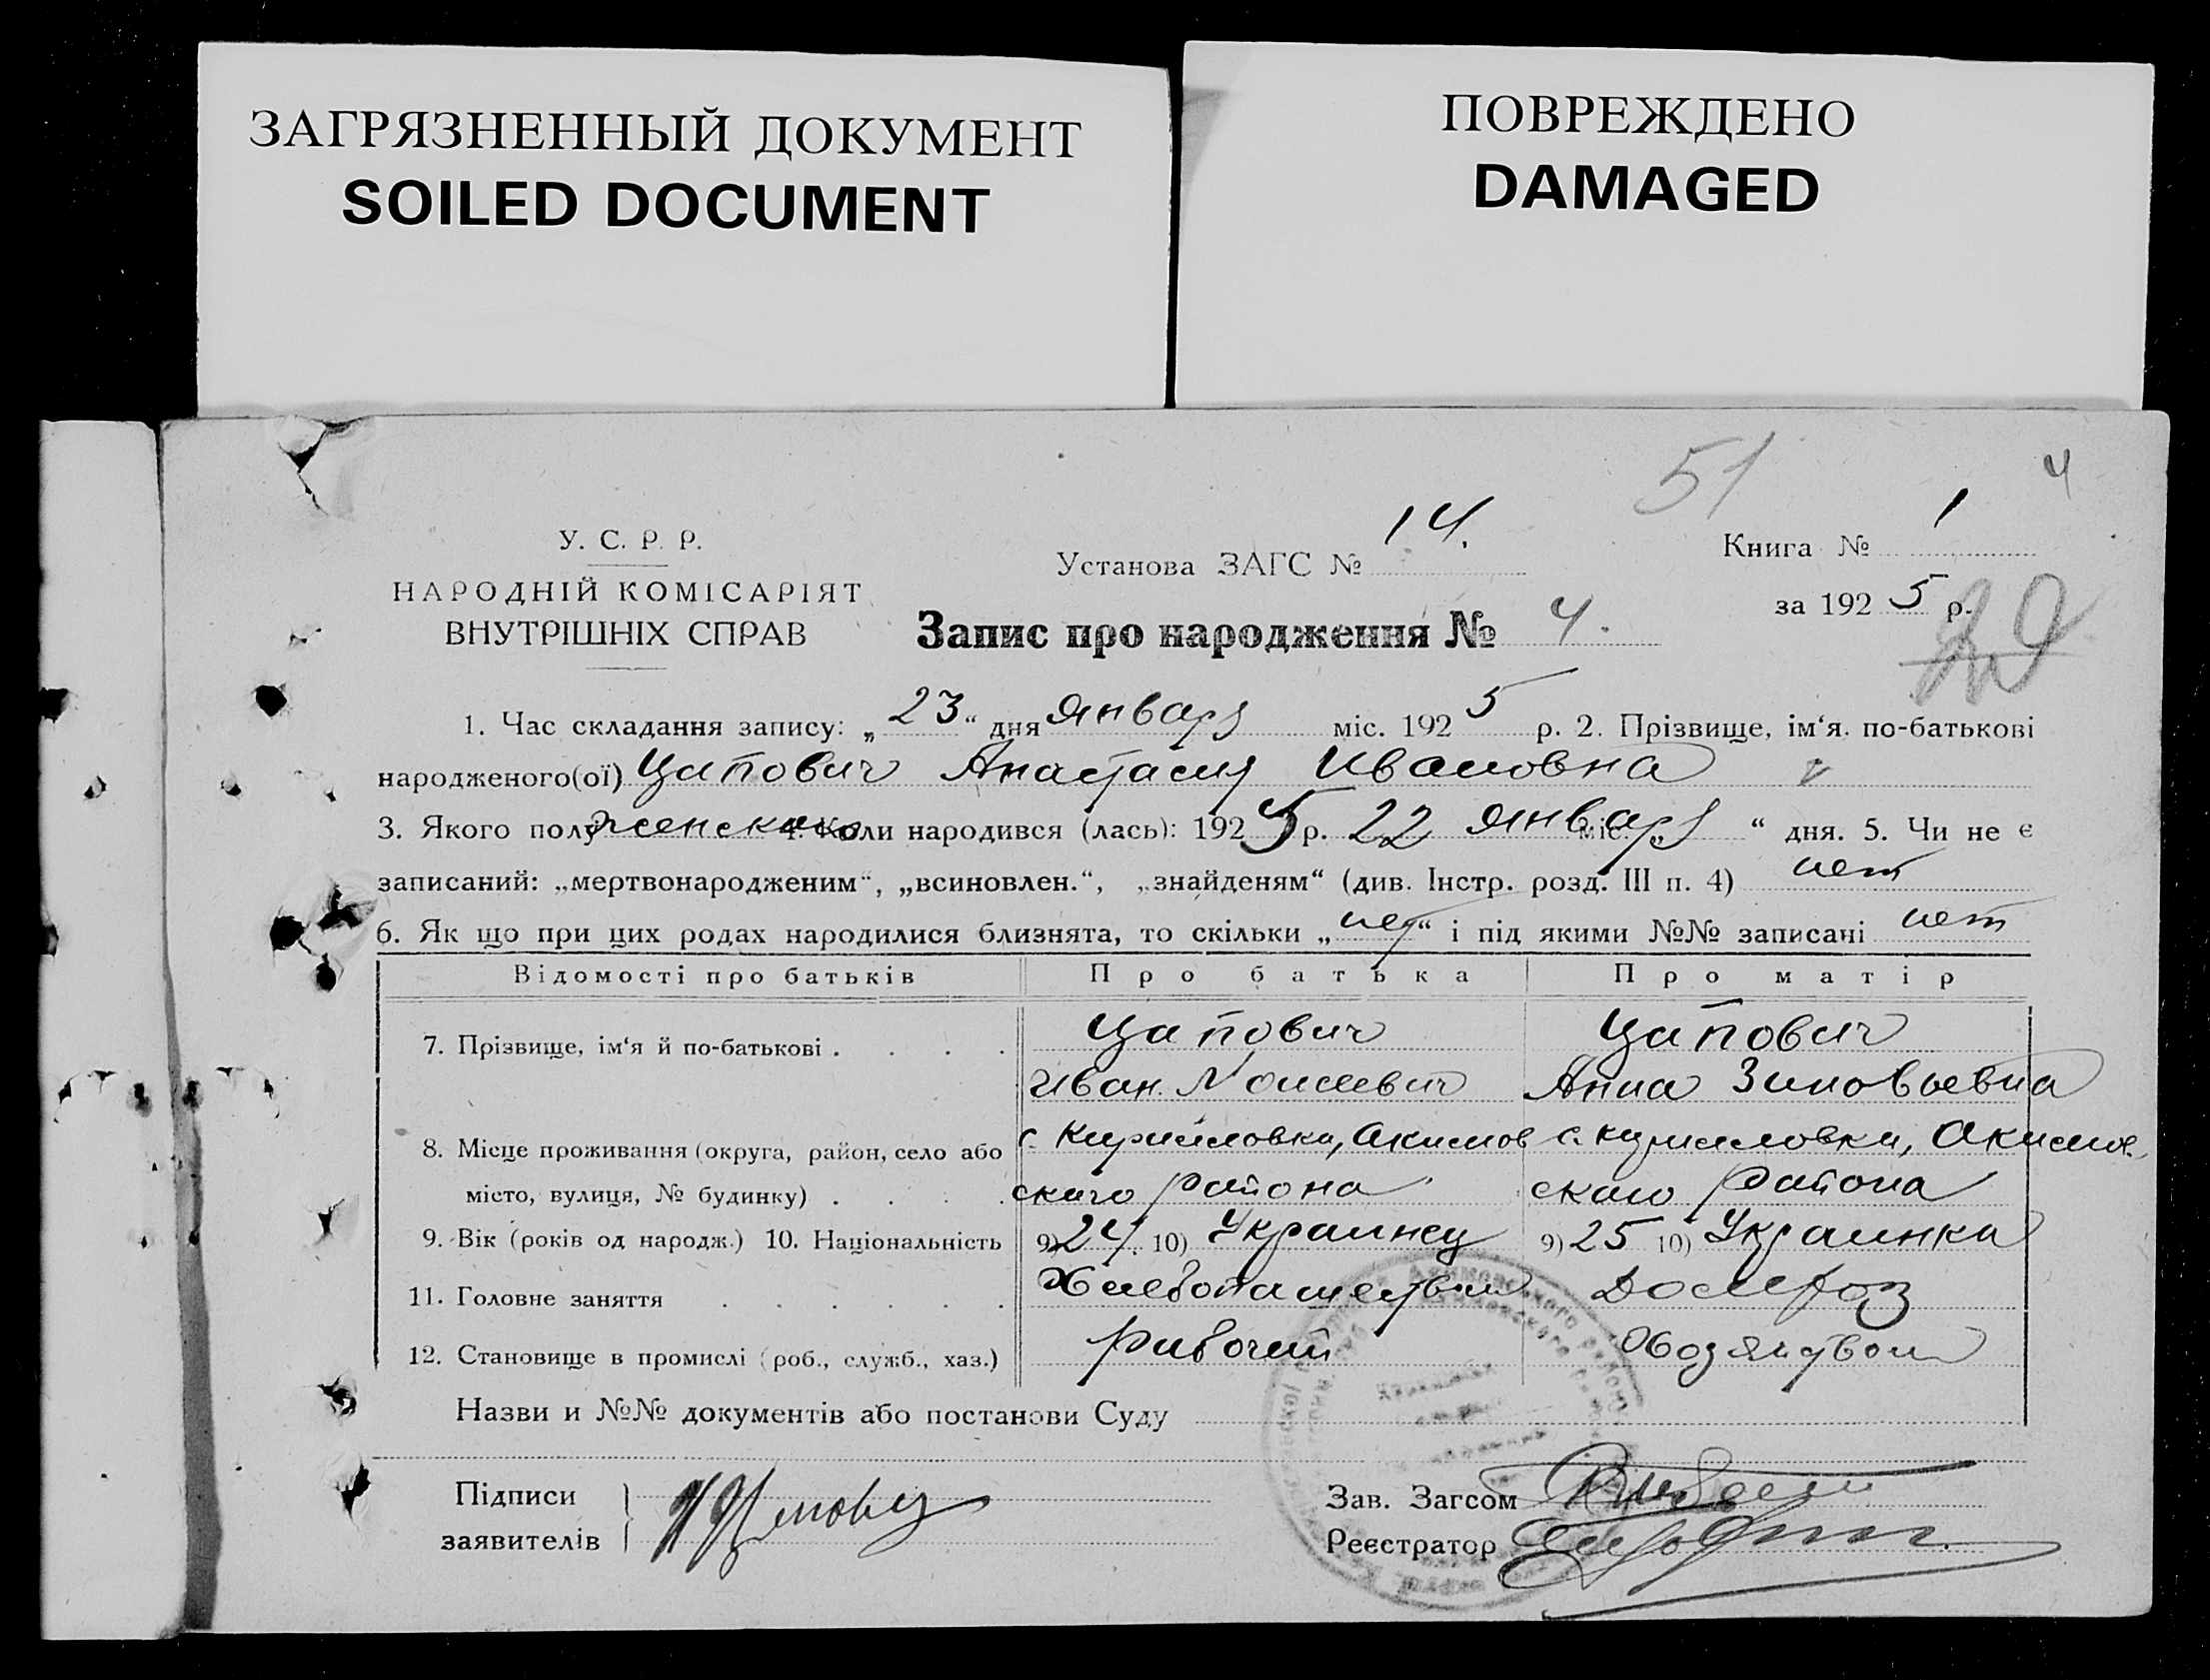 ЗАГРЯЗНЕННЫЙ ДОКУМЕНТ
SOILED DOCUMENT
ПОВРЕЖДЕНО
DAMAGED
51
4
У. С. Р. Р.
НАРОДНІЙ КОМІСАРІЯТ
ВНУТРІШНІХ СПРАВ
Установа ЗАГС № 14.
Книга № 1
за 1925 р.
Запис про народження № 4.
1. Час складання запису: „23“ дня января міс. 1925 р. 2. Прізвище, ім‘я, по-батькові
народженого(ої) Цапович Анастасия Ивановна
3. Якого полу женского 4. Коли народився (лась): 1925 р. 22 января міс. „ “ дня. 5. Чи не є
записаний: „мертвонародженим“, „всиновлен.“, „знайденям“ (див. Інстр. розд. III п. 4) нет
6. Як що при цих родах народилися близнята, то скільки „нет“ і під якими №№ записані нет
Відомості про батьків Про батька Про матір
7. Прізвище, ім‘я й по-батькові . . . . Цапович Цапович
Иван Моисеевич Анна Зиновьевна
8. Місце проживання (округа, район, село або с. Кирилловка, Акимов с. Кирилловка, Акимов-
місто, вулиця, № будинку) . . . . ского района ского района
9. Вік (років од народж.) 10. Національність 9) 24 10) Украинец 9) 25 10) Украинка
11. Головне заняття . . . . . . Хлебопашество Домхоз
12. Становище в промислі (роб., служб., хаз.) рабочий
Назви и №№ документів або постанови Суду
Підписи
заявителів
Зав. Загсом
Реєстратор